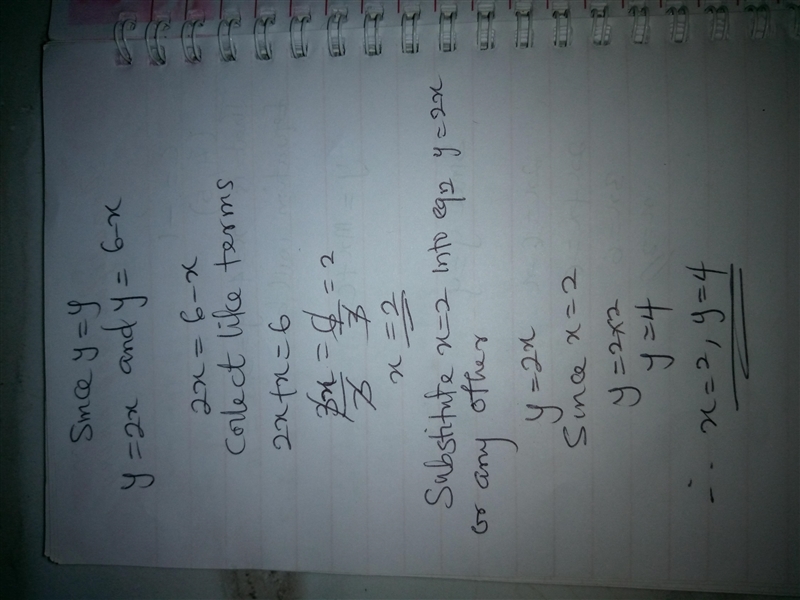 Since y=y
y=2x and y=6-x
2x=6-x
Collect like terms
2x+x=6
3x/3=6/3=2
x=2
Substitute x=2 into eq2 y=2x
or any other
y=2x
Since x=2
y=2x2
y=4
∴ x=2, y=4